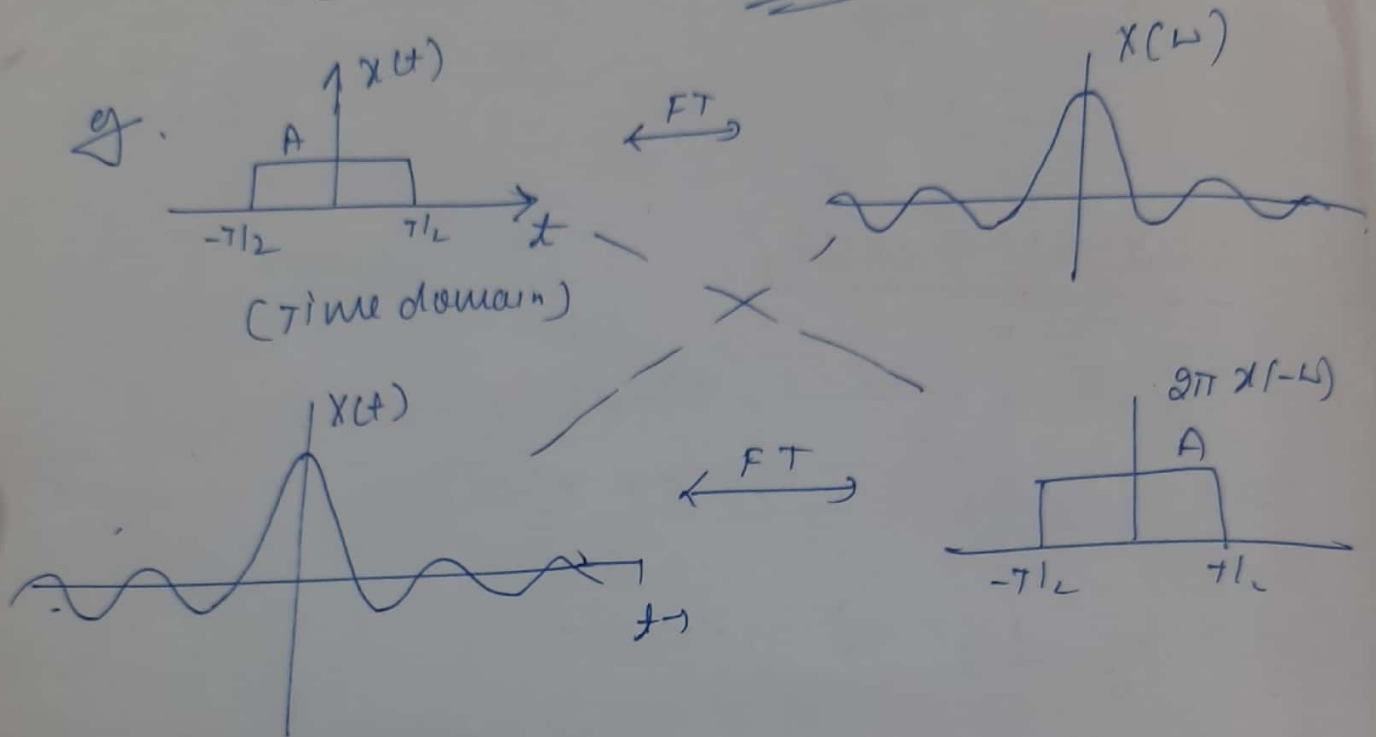 eg.
x(t)
A
-T/2
T/2
t
(Time domain)
FT
X(ω)
X(t)
t→
FT
2π x(-ω)
A
-T/2
T/2